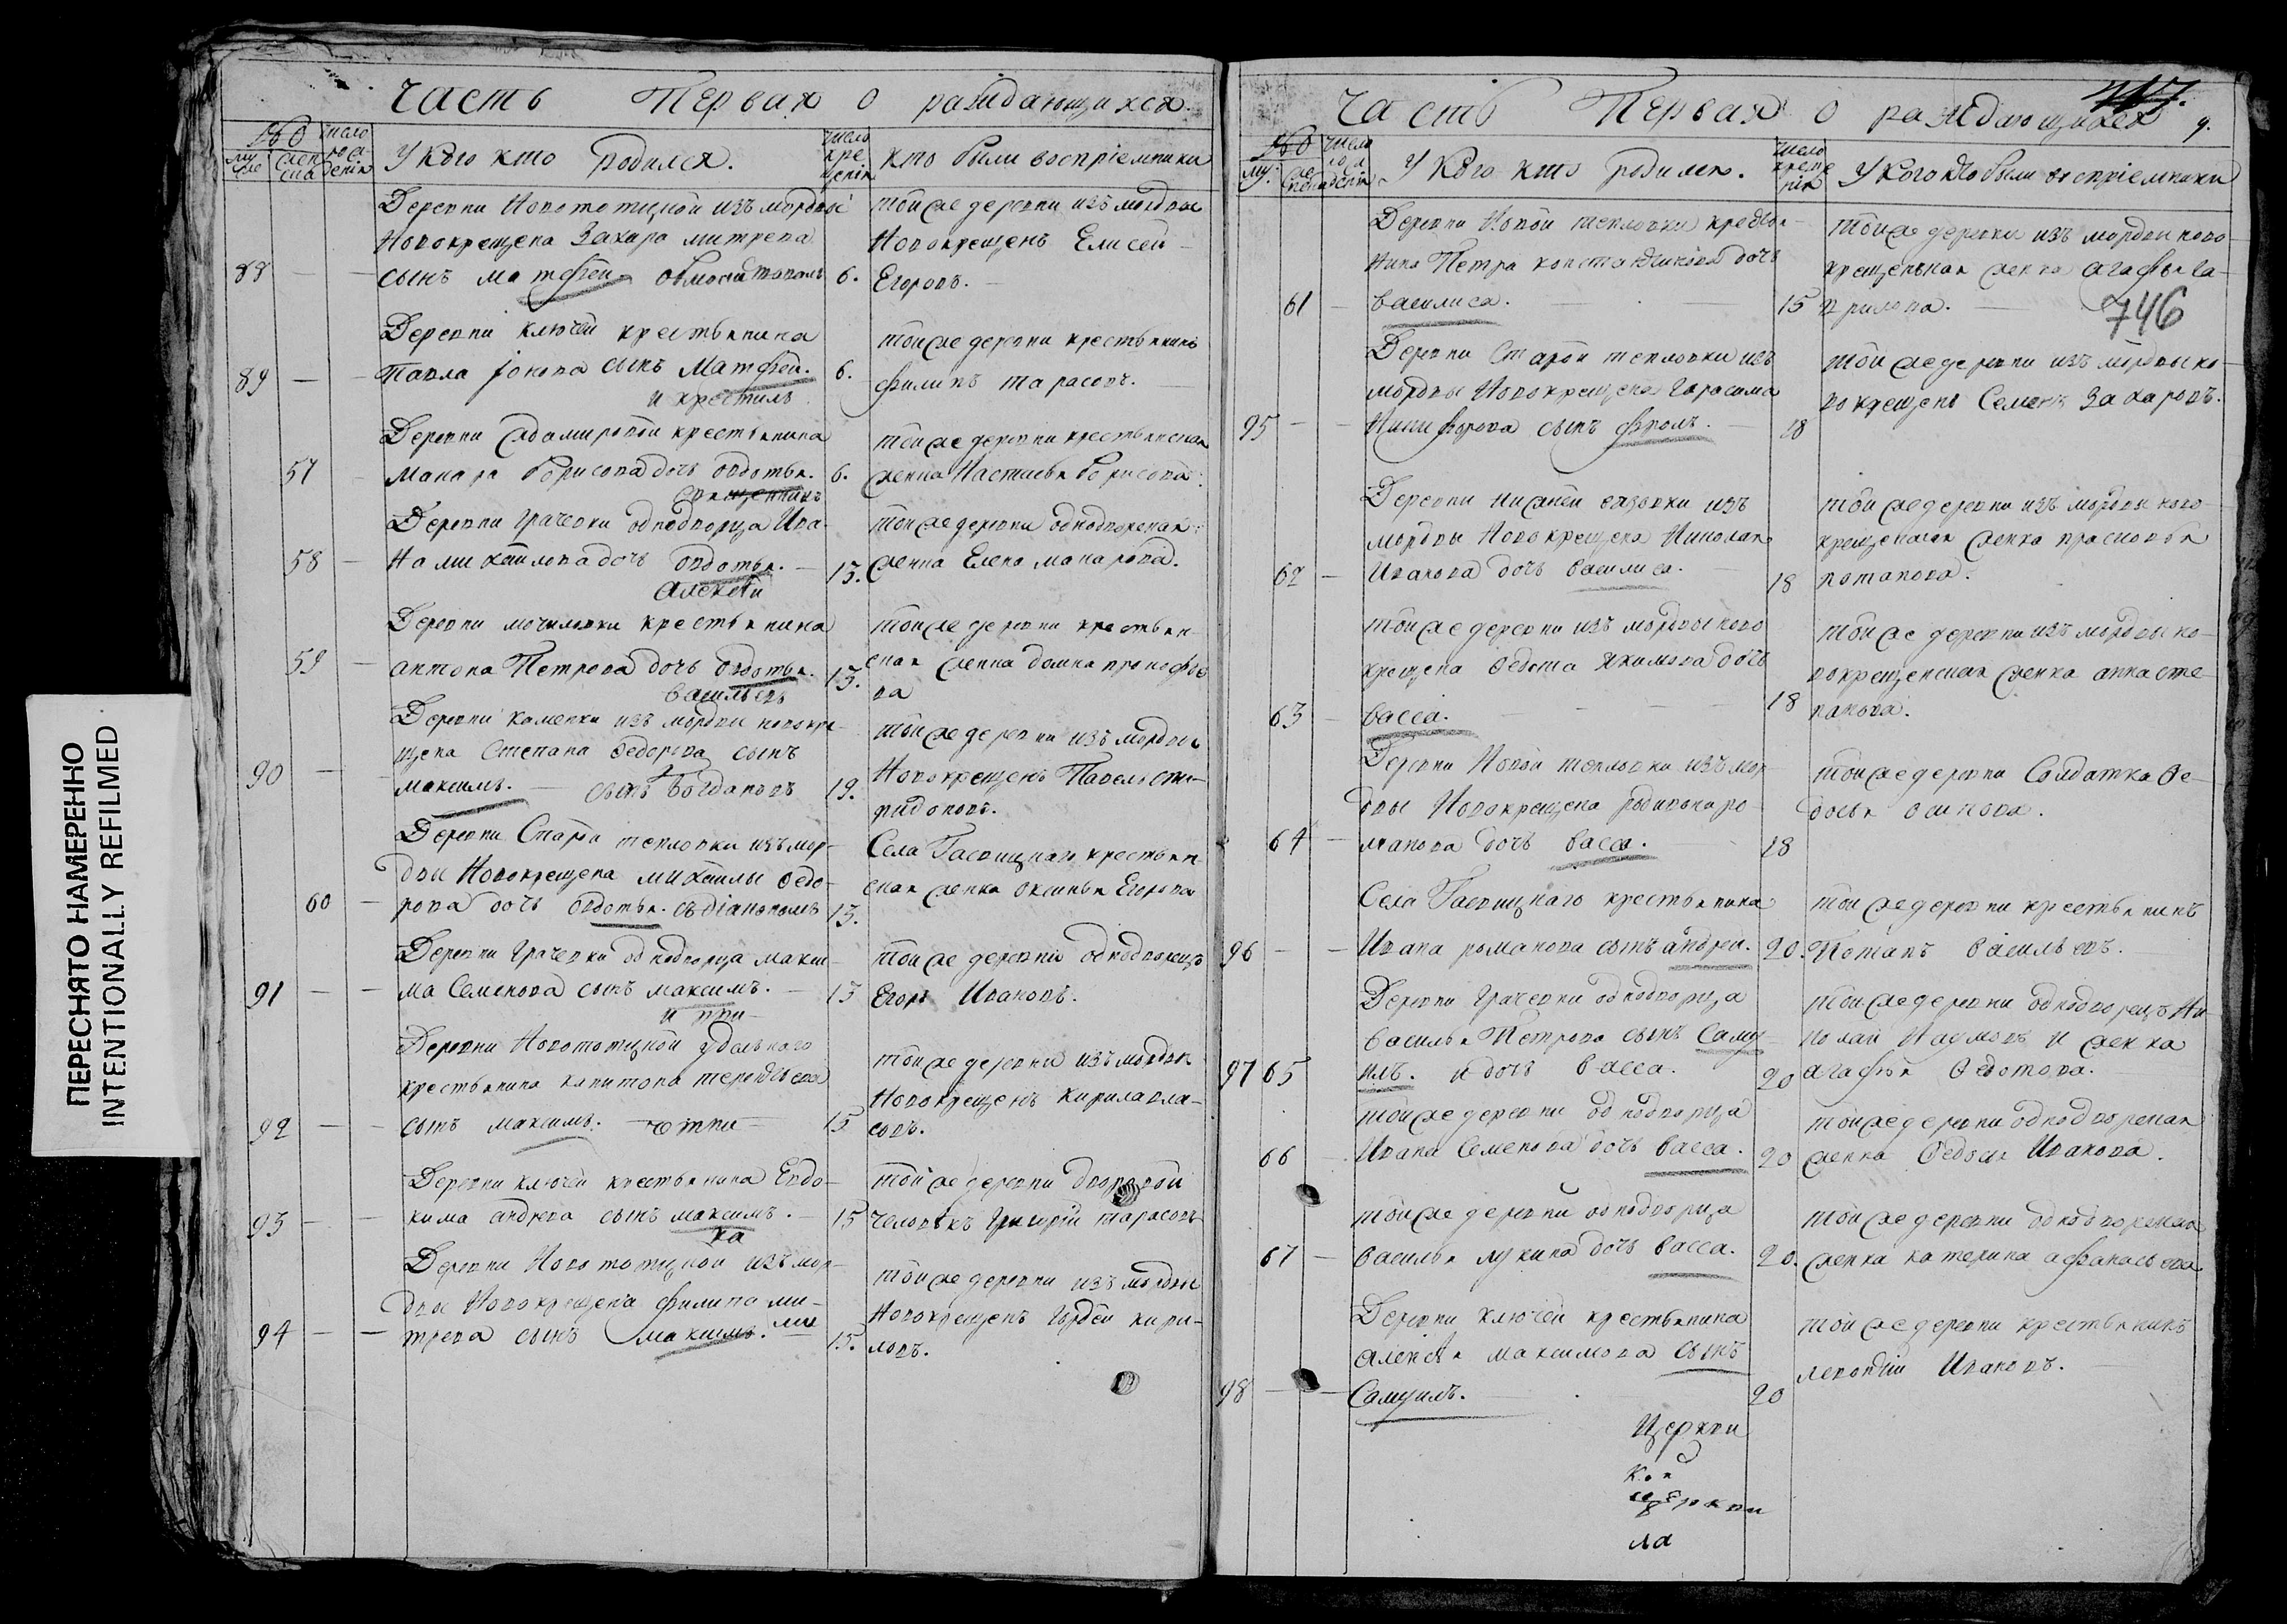 ПЕРЕСНЯТО НАМЕРЕННО
INTENTIONALLY REFILMED
Часть Первая о раждающихся
число
у кого кто родился.
число кре- щенія
кто были воспріемники
Деревни Новототцкой изъ мордвы
новокрещена Захара митрева
88 сынъ матфей 6.
той же деревни изъ мордвы
новокрещенъ Елисей
Егоровъ.
Деревни ключей крестьянина
89 Павла іонова сынъ Матфей. 6.
и крестилъ
той же деревни крестьянинъ
филипъ тарасовъ.
Деревни Адамировой крестьянина
57 макара борисова дочь овдотья. 6.
священникъ
той же деревни крестьянская
женка Настасья борисова.
Деревни грачевки однодворца Ива-
58 на михаилова дочь овдотья. 13.
алексѣй
той же деревни однодворская
женка Елена макарова.
Деревни мочиловки крестьянина
59 антона Петрова дочь овдотья. 13.
васильевъ
той же деревни крестьян-
ская женка домна прокофье
ва
Деревни каменки изъ мордвы новокре-
щена Степана ѳедорова сынъ
90 максимъ. сынъ богдановъ 12.
той же деревни изъ мордвы
новокрещенъ Павелъ спи-
ридоновъ.
Деревни Старой тепловки изъ мор-
двы новокрещена михаилы ѳедо-
60 рова дочь овдотья. съ діакономъ 13.
Села крестьян-
ская женка оксинья Егорова
Деревни грачевки однодворца макси-
91 ма Семенова сынъ максимъ. 13
и при-
той же деревни однодворецъ
Егоръ Ивановъ.
Деревни Новототцкой удѣльнаго
крестьянина капитона терентьева
92 сынъ максимъ. четни 15
той же деревни изъ мордвы
новокрещенъ кирила вла-
совъ.
Деревни ключей крестьянина Евдо-
93 кима андрева сынъ максимъ. 15
ка
той же деревни дворовой
человѣкъ григорій тарасовъ
Деревни Новототцкой изъ мор-
двы новокрещена филипа ми-
94 трева сынъ максимъ. ми 15.
той же деревни изъ мордвы
новокрещенъ гордей кири-
ловъ.
Часть Первая о раждающихся
747.
9.
число
у кого кто родился.
число креще нія
у кого кто были воспріемники
Деревни Новой тепловки крестья-
нина Петра константинова дочь
61 василиса. 15
той же деревни изъ мордвы ново-
крещенная женка агафья га-
врилова.
746
Деревни Старой тепловки изъ
мордвы новокрещена гарасима
95 Никифорова сынъ фролъ. 18
той же деревни изъ мордвы но-
вокрещенъ Семенъ Захаровъ.
Деревни нижней вязовки изъ
мордвы новокрещена Николая
62 Иванова дочь василиса. 18
той же деревни изъ мордвы ново-
крещенская женка прасковья
потапова.
той же деревни изъ мордвы ново
крещена ѳедота якимова дочь
63 васса. 18
той же деревни изъ мордвы но-
вокрещенская женка анна сте-
панова.
Деревни Новой тепловки изъ мор-
двы новокрещена родивона ро-
64 манова дочь васса. 18
той же деревни Солдатка ѳе-
досья осипова.
Села крестьянина
96 Ивана романова сынъ андрей. 20.
той же деревни крестьянинъ
Потапъ васильевъ.
Деревни грачевки однодворца
василья Петрова сынъ Саму
97 65 илъ. и дочь васса. 20
той же деревни однодворецъ Ни-
колай Наумовъ и женка
агафья ѳедотова.
той же деревни однодворца
66 Ивана Семенова дочь васса. 20
той же деревни однодворская
женка ѳедосья Иванова.
той же деревни однодворца
67 василья лукина дочь васса. 20.
той же деревни однодворская
женка катерина афанасьева
Деревни ключей крестьянина
алексѣя максимова сынъ
98 Самуилъ. 20
той же деревни крестьянинъ
леонтій Ивановъ.
Церкви
церкви
ла